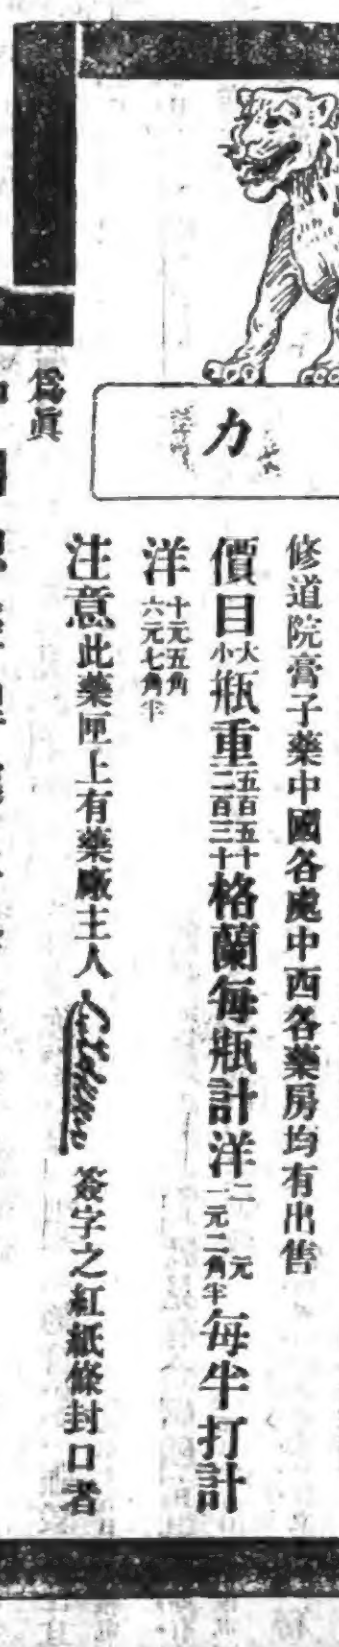 力
修道院膏子藥中國各處中西各藥房均有出售
價目大小瓶重五百五十二百三十格蘭每瓶計洋二元一元二角半每半打計
洋十元五角六元七角半
注意此藥匣上有藥廠主人簽字之紅紙條封口者
爲眞